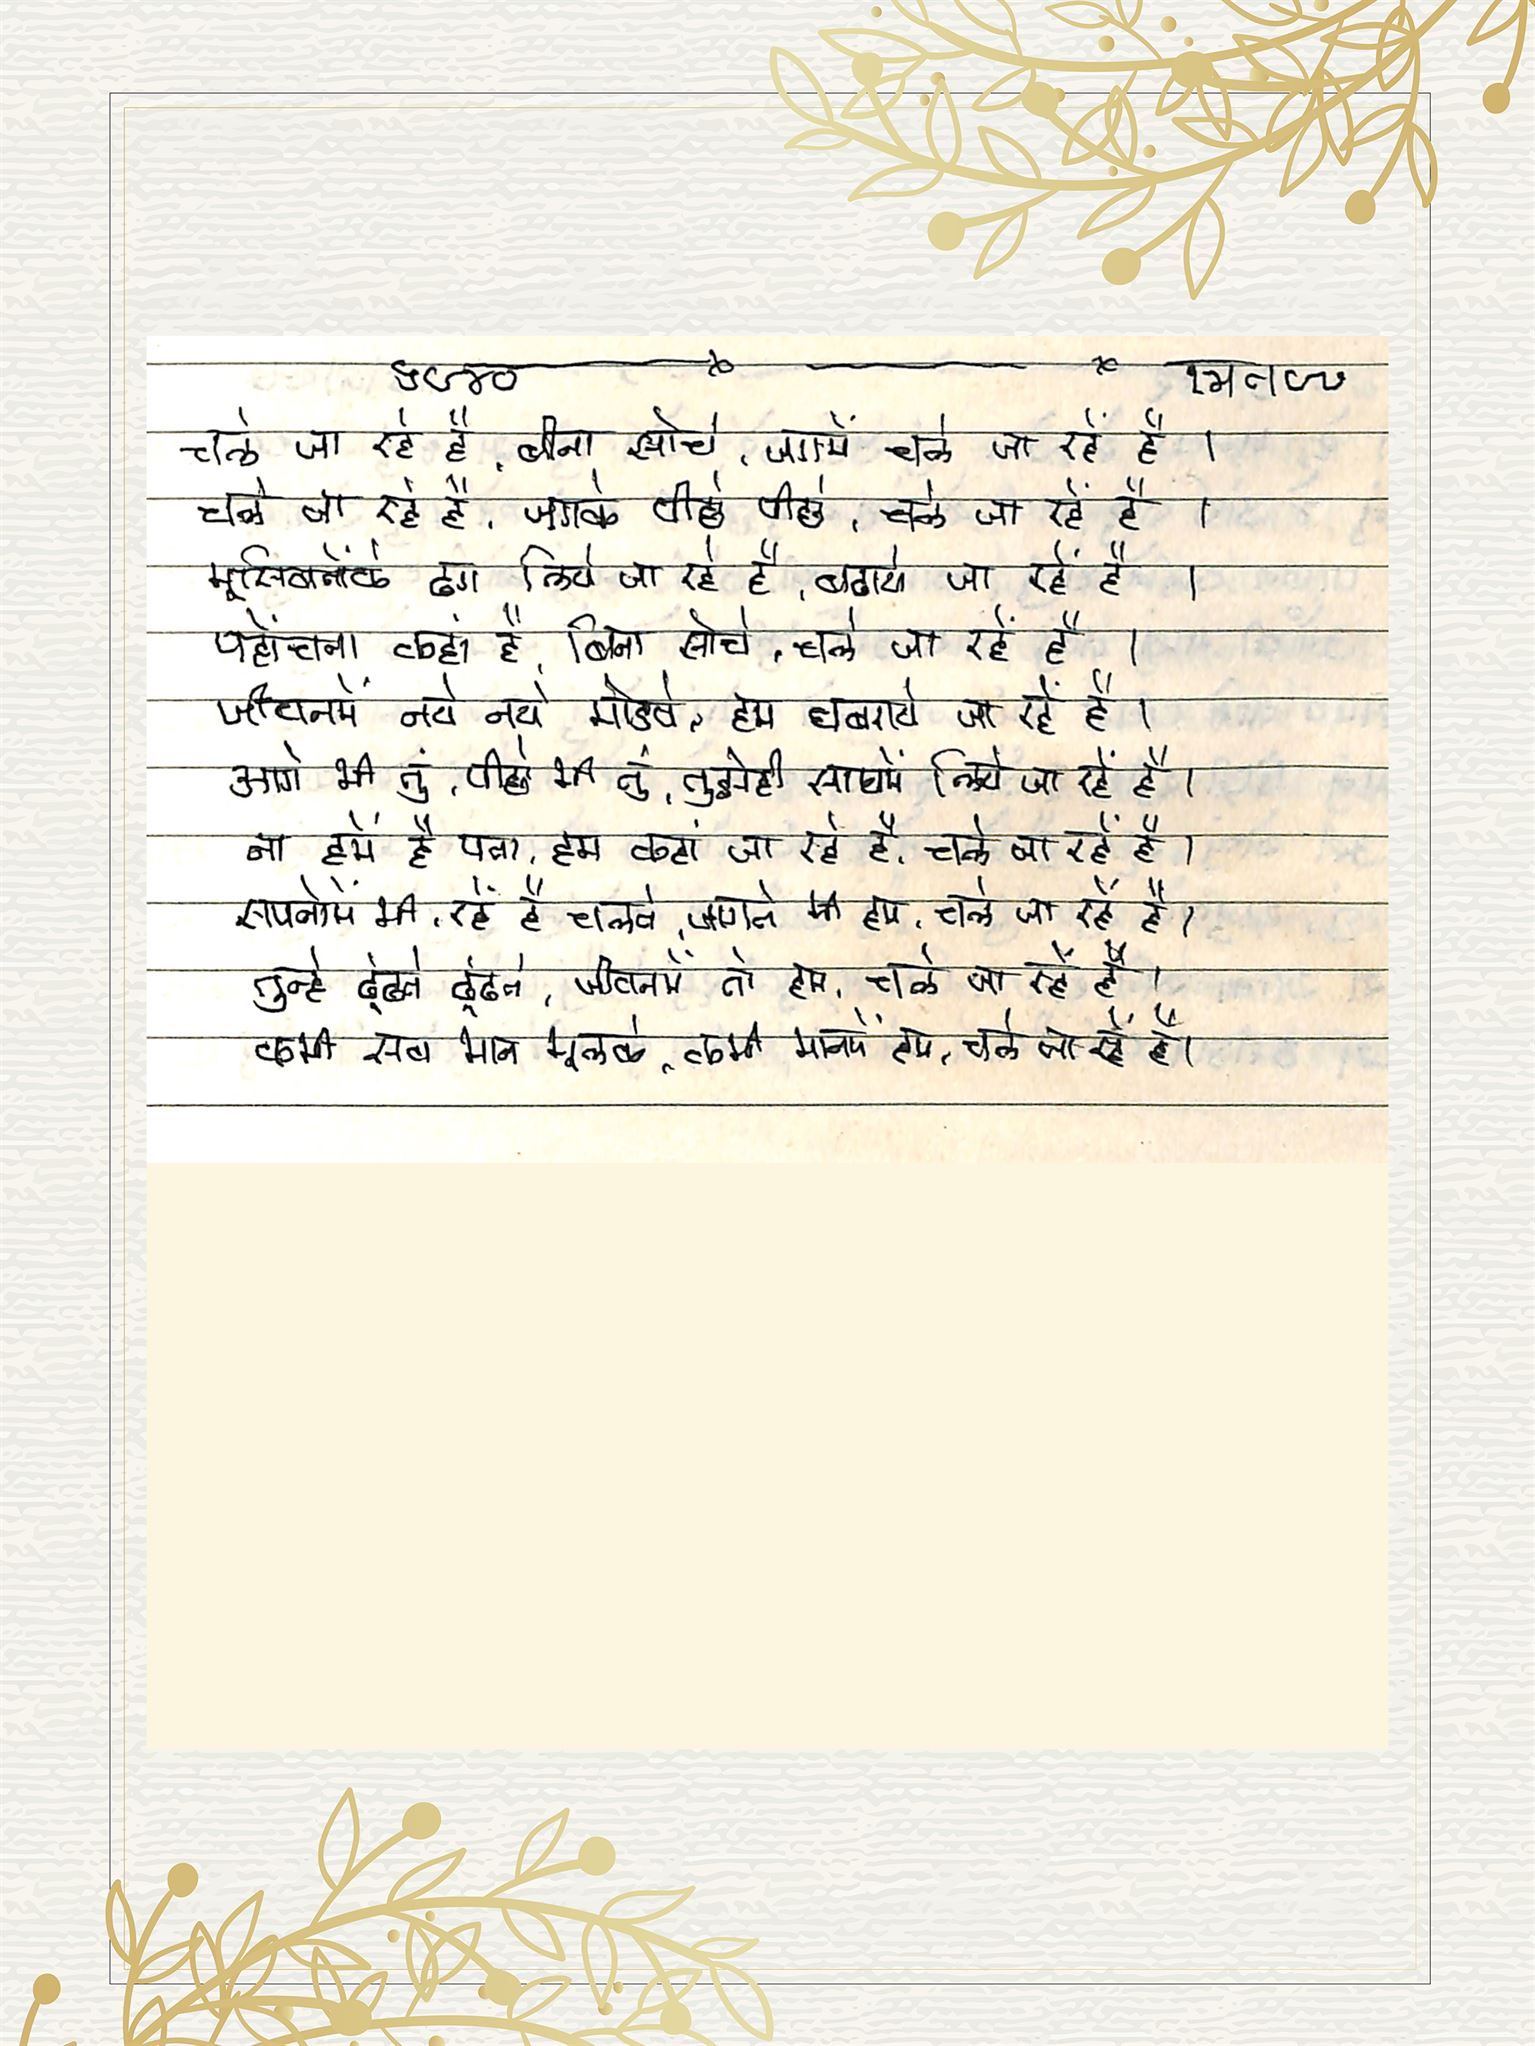 चले जा रहे है, बीना सोचे, जगमें चले जा रहें है ।
चले जा रहे है, जगके पीछे पीछे, चले जा रहें है ।
मूसिबतोंके ढग लिये जा रहे है, बढाये जा रहें है ।
पहोंचना कहां है, बिना सोचे, चले जा रहें है ।
जीवनमें नये नये मोडपे, हम घबराये जा रहें है ।
आगे भी तुं, पीछे भी तुं, तुझेही साथमें लिये जा रहें है ।
ना हमें है पता, हम कहां जा रहे है, चले जा रहें है ।
सपनोमें भी, रहें है चलते, जागते भी हम, चले जा रहें है ।
तुन्हे ढूंढते ढूंढते, जीवनमें तो हम, चले जा रहें हैं ।
कभी सब भान भूलके, कभी भानमें हम, चले जा रहें हैं ।